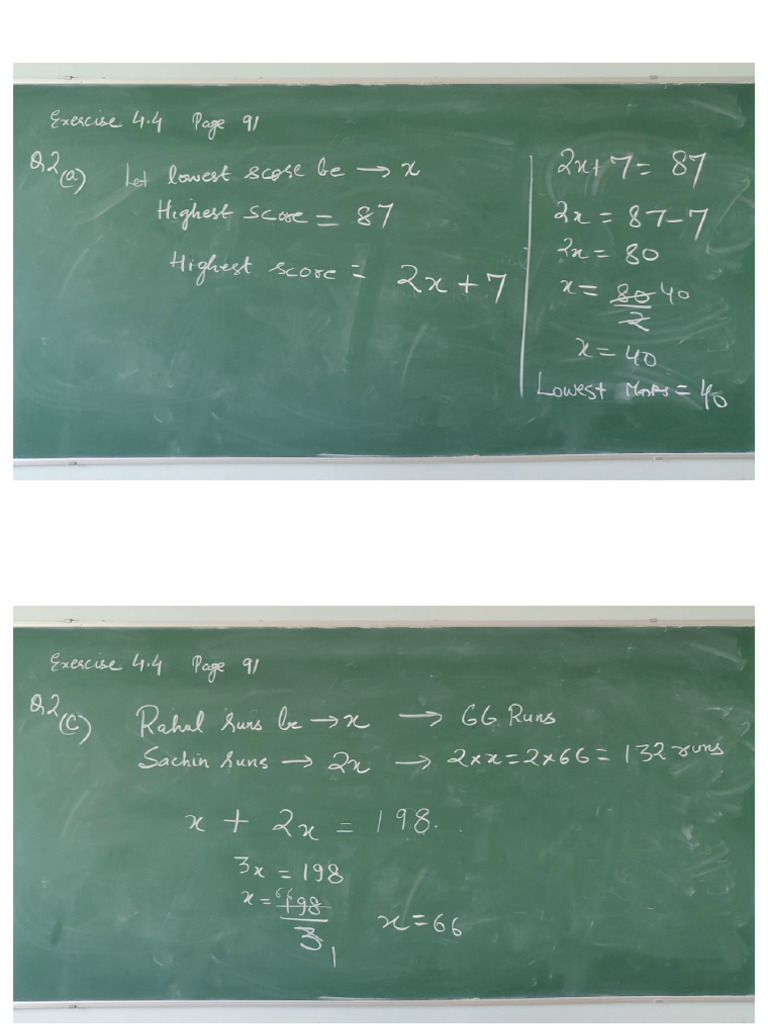 Exercise 4.4 Page 91
Q2(a) Let lowest score be → x
Highest score = 87
Highest score = 2x + 7
2x + 7 = 87
2x = 87 - 7
2x = 80
x = 80/2 40
x = 40
Lowest Marks = 40
Exercise 4.4 Page 91
Q2(C) Rahul runs be → x → 66 Runs
Sachin runs → 2x → 2×x = 2×66 = 132 runs
x + 2x = 198
3x = 198
x = 198/3 66 1
x = 66